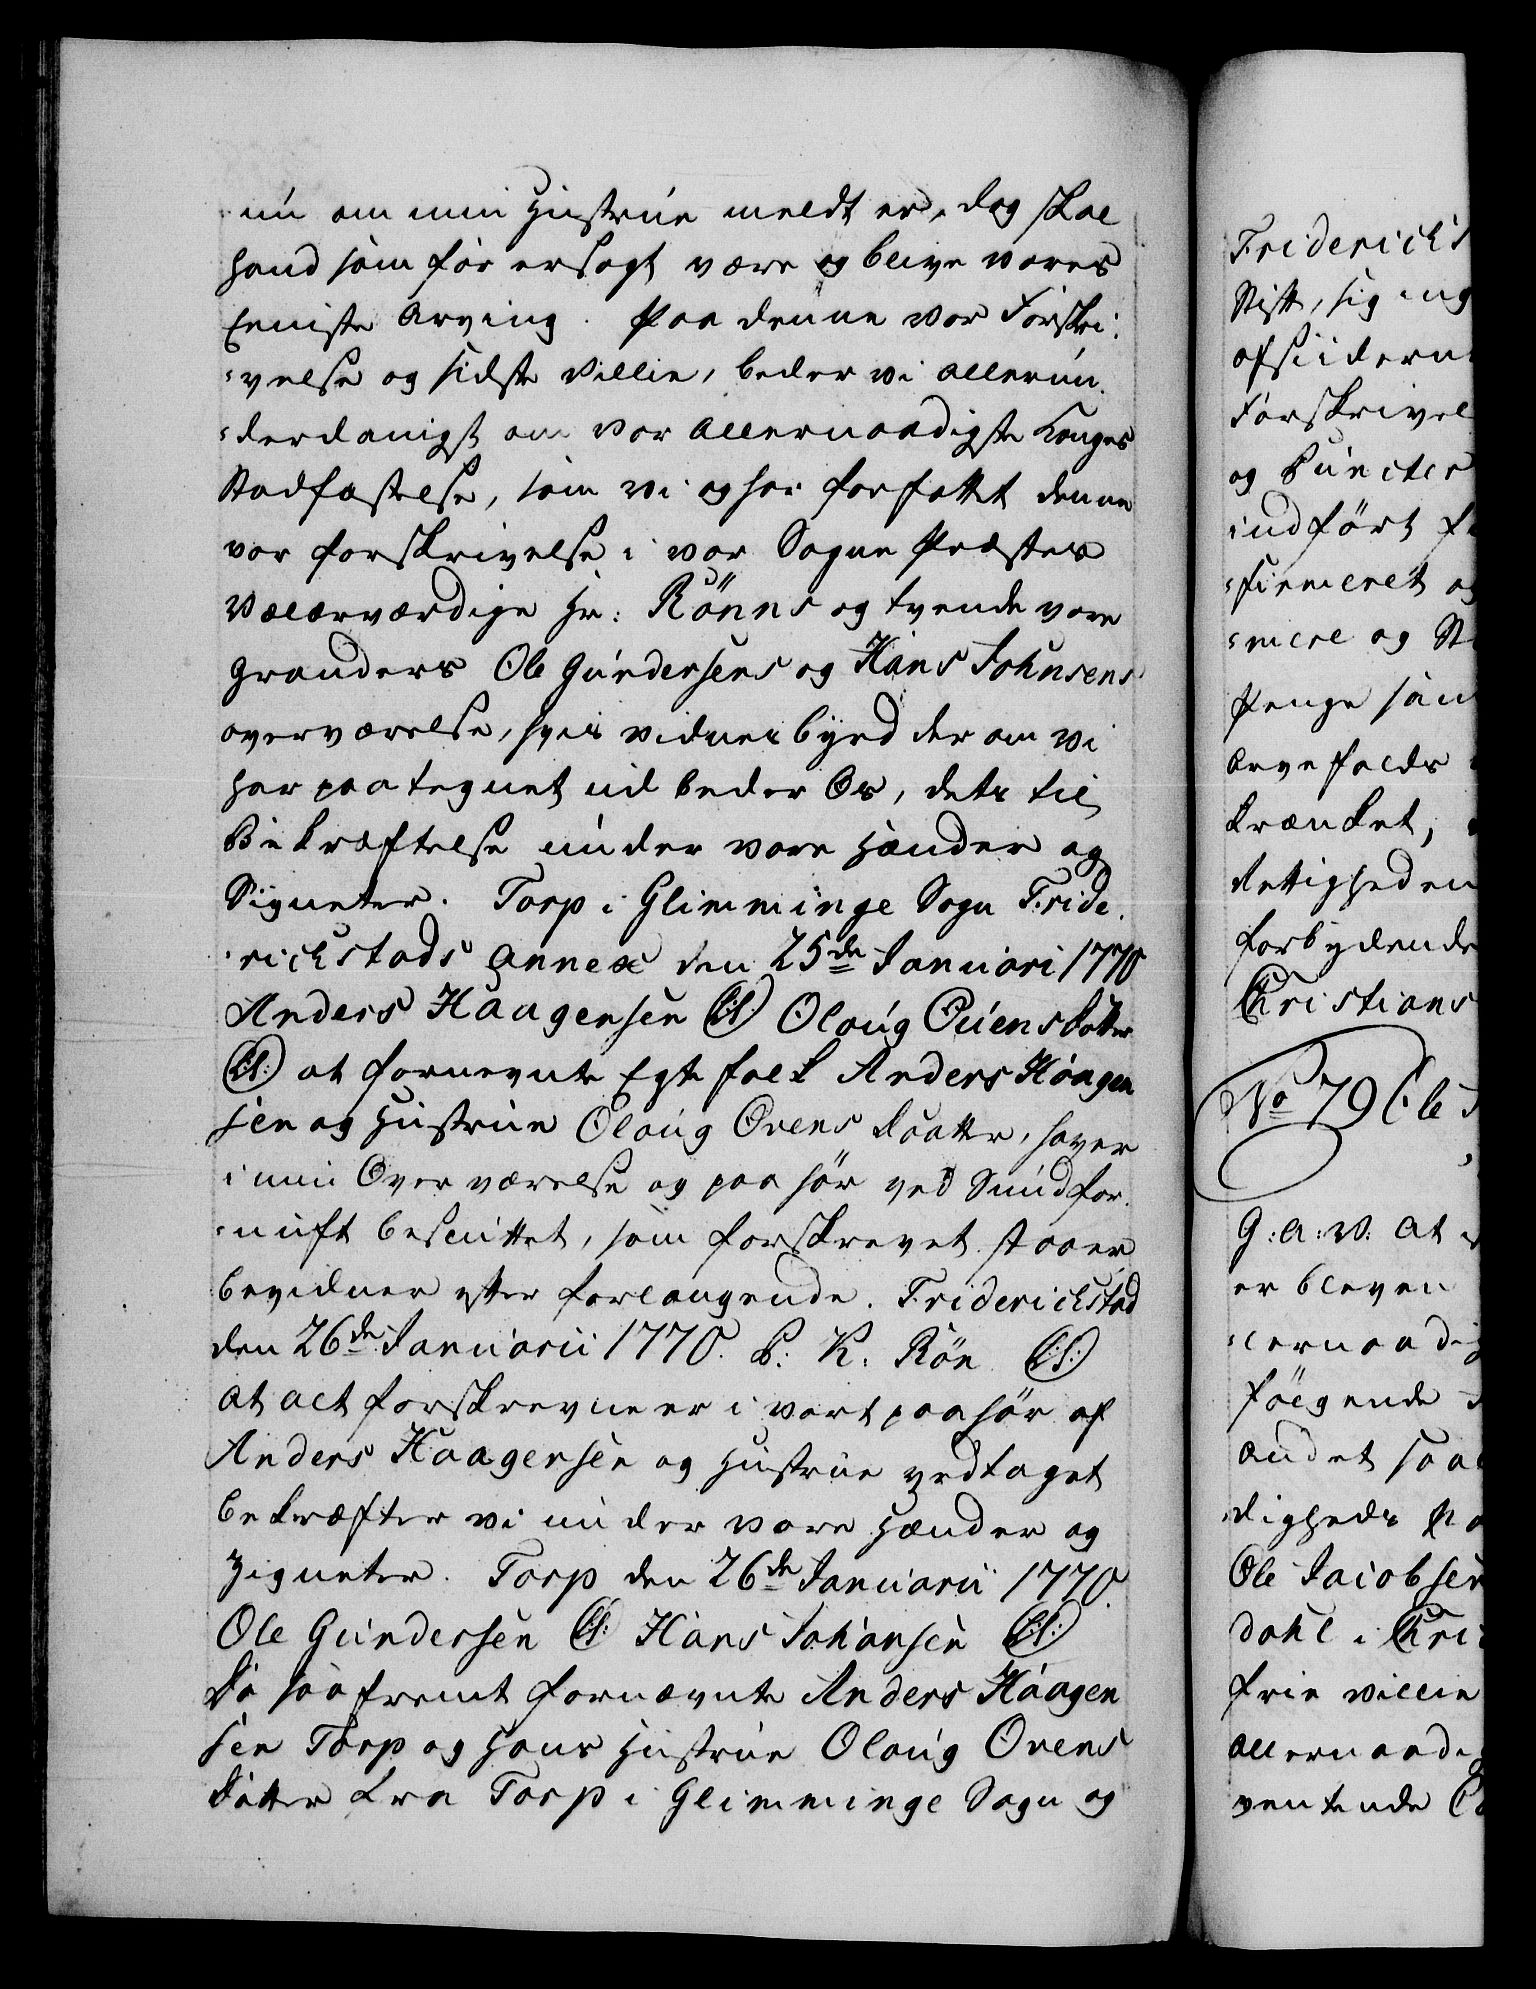 nu om min Hustrue meldt er, dog skal
hand som før er sagt være og blive vores
Eeniste Arving. Paa denne vor Forskri-
-velse og sidste Villie, beder vi allerun-
-derdanigst om vor Allernaadigste Konges
Stadfæstelse, som vi og har forfattet denne
vor forskrivelse i vor Sogne Præstes
Velærværdige Hr: Rönns og tvende vore
Granders Ole Gundersens og Hans Johnsens
overværelse, hvis vidnesbyrd der om vi
har paategnet ud beder Os, dets til
Bekræftelse under vore Hænder og
Signeter. Torp i Glimminge Sogn Fride-
-richstads Annex den 25de Januari 1770
Anders Haagensen (L:S:) Olaug Ouensdatter
(L:S:) at fornevnte Egte folk Anders Haagen
sen og Hustrue Olaug Ovens daatter, haver
i min Overværelse og paa hør ved Sund for-
-nuft besluttet, som forskrevet staaer
bevidner efter forlangende. Friderichstad
den 26de Januarii 1770. P: K: Rön (L:S:)
at alt forskrevne er i vort paahør af
Anders Haagensen og Hustrue vedtaget
bekræfter vi under vore Hænder og
Zigneter. Torp den 26de Januarii 1770.
Ole Gundersen (L:S:) Hans Johansen (L:S:)
Da saafremt fornævnte Anders Haagen
sen Torp og Hans Hustrue Olaug Ovens
datter fra Torp i Glimminge Sogn og
Friderichs
Stift, sig ing
afsiidern
Forskrivel
og Puncter
indført f
-firmeret og
-mere og St
Penge sam
Arvefalds
krænket,
Rettigheden
forbydende
Christians
No 79 Ole
G:A:V: At
er bleven
-lernaadig
følgende
andet saa
digheds
Ole Jacobsen
dahl i Chri
frie villie
allernaadi
ventende